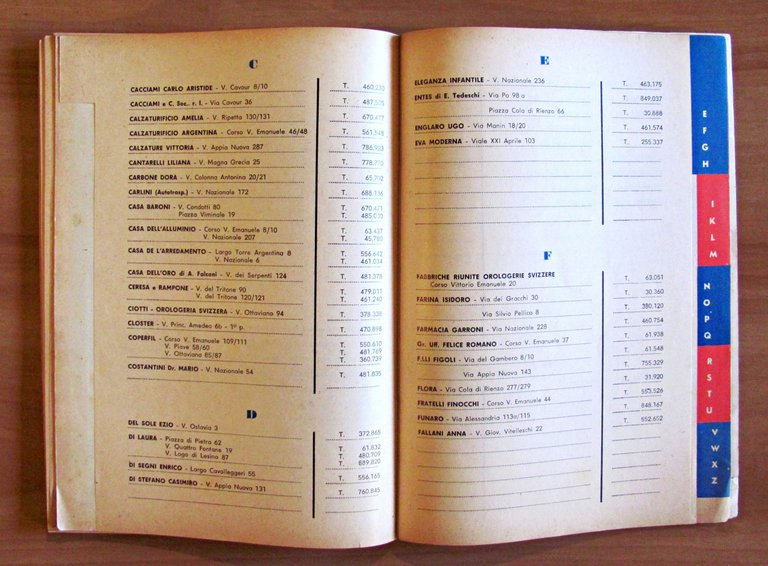 C
CACCIAMI CARLO ARISTIDE - V. Cavour 8/10 T. 460.230
CACCIAMI e C. Soc. r. l. - Via Cavour 36 T. 487.505
CALZATURIFICIO AMELIA - V. Ripetta 130/131 T. 670.477
CALZATURIFICIO ARGENTINA - Corso V. Emanuele 46/48 T. 561.548
CALZATURE VITTORIA - V. Appia Nuova 287 T. 786.923
CANTARELLI LILIANA - V. Magna Grecia 25 T. 778.770
CARBONE DORA - V. Colonna Antonina 20/21 T. 65.702
CARLINI (Autotrasp.) - V. Nazionale 172 T. 688.136
CASA BARONI - V. Condotti 80 T. 670.471
Piazza Viminale 19 T. 485.030
CASA DELL'ALLUMINIO - Corso V. Emanuele 8/10 T. 63.437
V. Nazionale 207 T. 45.780
CASA DE L'ARREDAMENTO - Largo Torre Argentina 8 T. 556.642
V. Nazionale 6 T. 461.034
CASA DELL'ORO di A. Falconi - V. dei Serpenti 124 T. 481.378
CERESA e RAMPONE - V. del Tritone 90 T. 479.011
V. del Tritone 120/121 T. 461.240
CIOTTI - OROLOGERIA SVIZZERA - V. Ottaviano 94 T. 378.338
CLOSTER - V. Princ. Amedeo 6b - 1º p. T. 470.898
COPERFIL - Corso V. Emanuele 109/111 T. 550.610
V. Piave 58/60 T. 481.769
V. Ottaviano 85/87 T. 360.739
COSTANTINI Dr. MARIO - V. Nazionale 54 T. 481.835
D
DEL SOLE EZIO - V. Oslavia 3 T. 372.865
DI LAURA - Piazza di Pietra 62 T. 61.832
V. Quattro Fontane 19 T. 480.709
V. Lago di Lesina 87 T. 889.820
DI SEGNI ENRICO - Largo Cavalleggeri 55 T. 556.165
DI STEFANO CASIMIRO - V. Appia Nuova 131 T. 760.845
E
ELEGANZA INFANTILE - V. Nazionale 236 T. 463.175
ENTES di E. Tedeschi - Via Po 98 a T. 849.037
Piazza Cola di Rienzo 66 T. 30.888
ENGLARO UGO - Via Manin 18/20 T. 461.574
EVA MODERNA - Viale XXI Aprile 103 T. 255.337
F
FABBRICHE RIUNITE OROLOGERIE SVIZZERE
Corso Vittorio Emanuele 20 T. 63.051
FARINA ISIDORO - Via dei Gracchi 30 T. 30.360
Via Silvio Pellico 8 T. 380.120
FARMACIA GARRONI - Via Nazionale 228 T. 460.754
Gr. Uff. FELICE ROMANO - Corso V. Emanuele 37 T. 61.938
F.LLI FIGOLI - Via del Gambero 8/10 T. 61.548
Via Appia Nuova 143 T. 755.329
FLORA - Via Cola di Rienzo 277/279 T. 31.920
FRATELLI FINOCCHI - Corso V. Emanuele 44 T. 553.526
FUNARO - Via Alessandria 113a/115 T. 848.167
FALLANI ANNA - V. Giov. Vitelleschi 22 T. 552.652
E
F
G
H
I
K
L
M
N
O
P
Q
R
S
T
U
V
W
X
Z